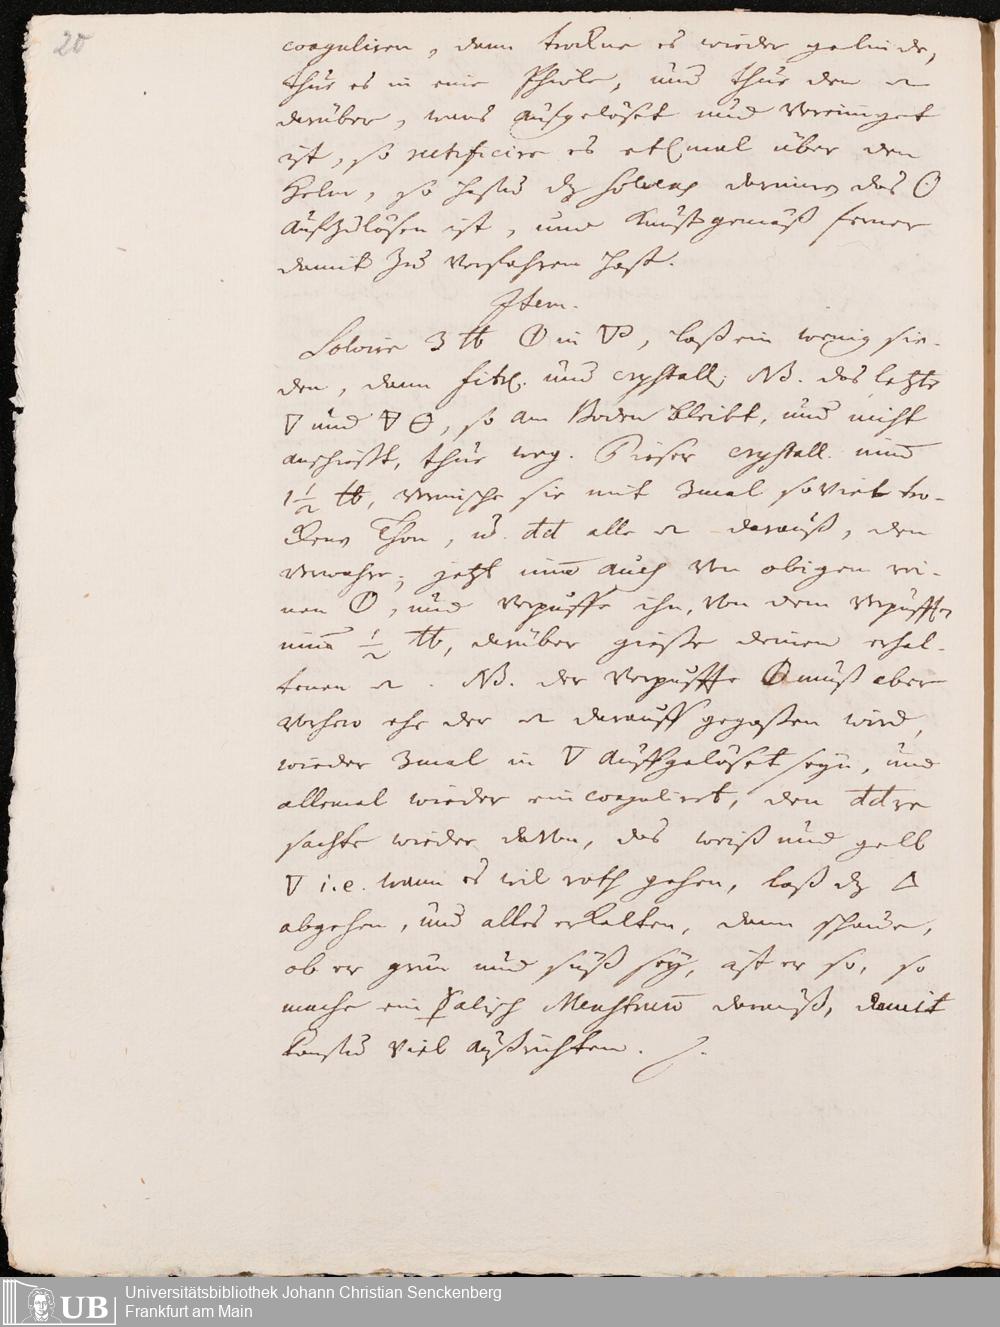 20
coaguliren, dann trockne es wieder gelinde,
thue es in eine Phiole, und thue den
darüber, was aufgelöset und vereiniget
ist, so rectificire es etl. mal über den
Helm, so hastu dz solvens darinnen das ☉
aufzulösen ist, und kunstgemäß ferner
damit zu verfahren hast.
Item.
Solvire 3 ℔ 🜕 in 🜄, laß ein wenig sie-
den, dann filtr. und crystall. NB. das letzte
🜄 und 🜃 🜔, so am Boden bleibt, und nicht
anschießt, thue weg. Dieser crystall. nim̅
1½ ℔, vermische sie mit 3mal soviel tro-
ckens Thon, u. dd alle darauß, den
verwahre; jetzt nim̅ auch von obigen rei-
nen 🜕, und verpuffe ihn, von dem verpufften
nim̅ ½ ℔, darüber gieße deinen erhal-
tenen . NB. der verpuffte 🜕 muß aber
vorhero ehe der darauff gegoßen wird,
wieder 3mal in 🜄 auffgelöset seyn, und
allemal wieder ein coagulirt, den dd re
sachte wieder davon, das weiß und gelb
🜄 i.e. wann es wil roth gehen, laß dz 🜂
abgehen, und alles erkalten, dann schaue,
ob er grün und süß sey, ist er so, so
mache ein Salisch Menstruu̅ darauß, damit
kanstu viel außrichten.
UB
Universitätsbibliothek Johann Christian Senckenberg
Frankfurt am Main